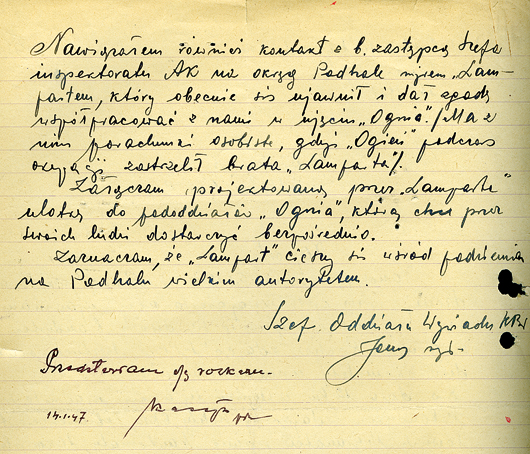 Nawiązałem również kontakt z b. zastępcą Szefa
inspektoratu AK na okręg Podhale mjrem „Lam-
partem, który obecnie się ujawnił i dał zgodę
współpracować z nami w ujęciu „Ognia". /Ma z
nim porachunki osobiste, gdyż „Ogień" podczas
okupacji zastrzelił brata „Lamparta"/.
Załączam projektowaną przez „Lamparta"
ulotkę do pododdziałów „Ognia", którą chce przez
swoich ludzi dostarczyć bezpośrednio.
Zaznaczam, że „Lampart" cieszy się wśród podziemia
na Podhalu wielkim autorytetem.
Szef. Oddziału Wywiadu KBW
Przedstawiam
14.1.47.